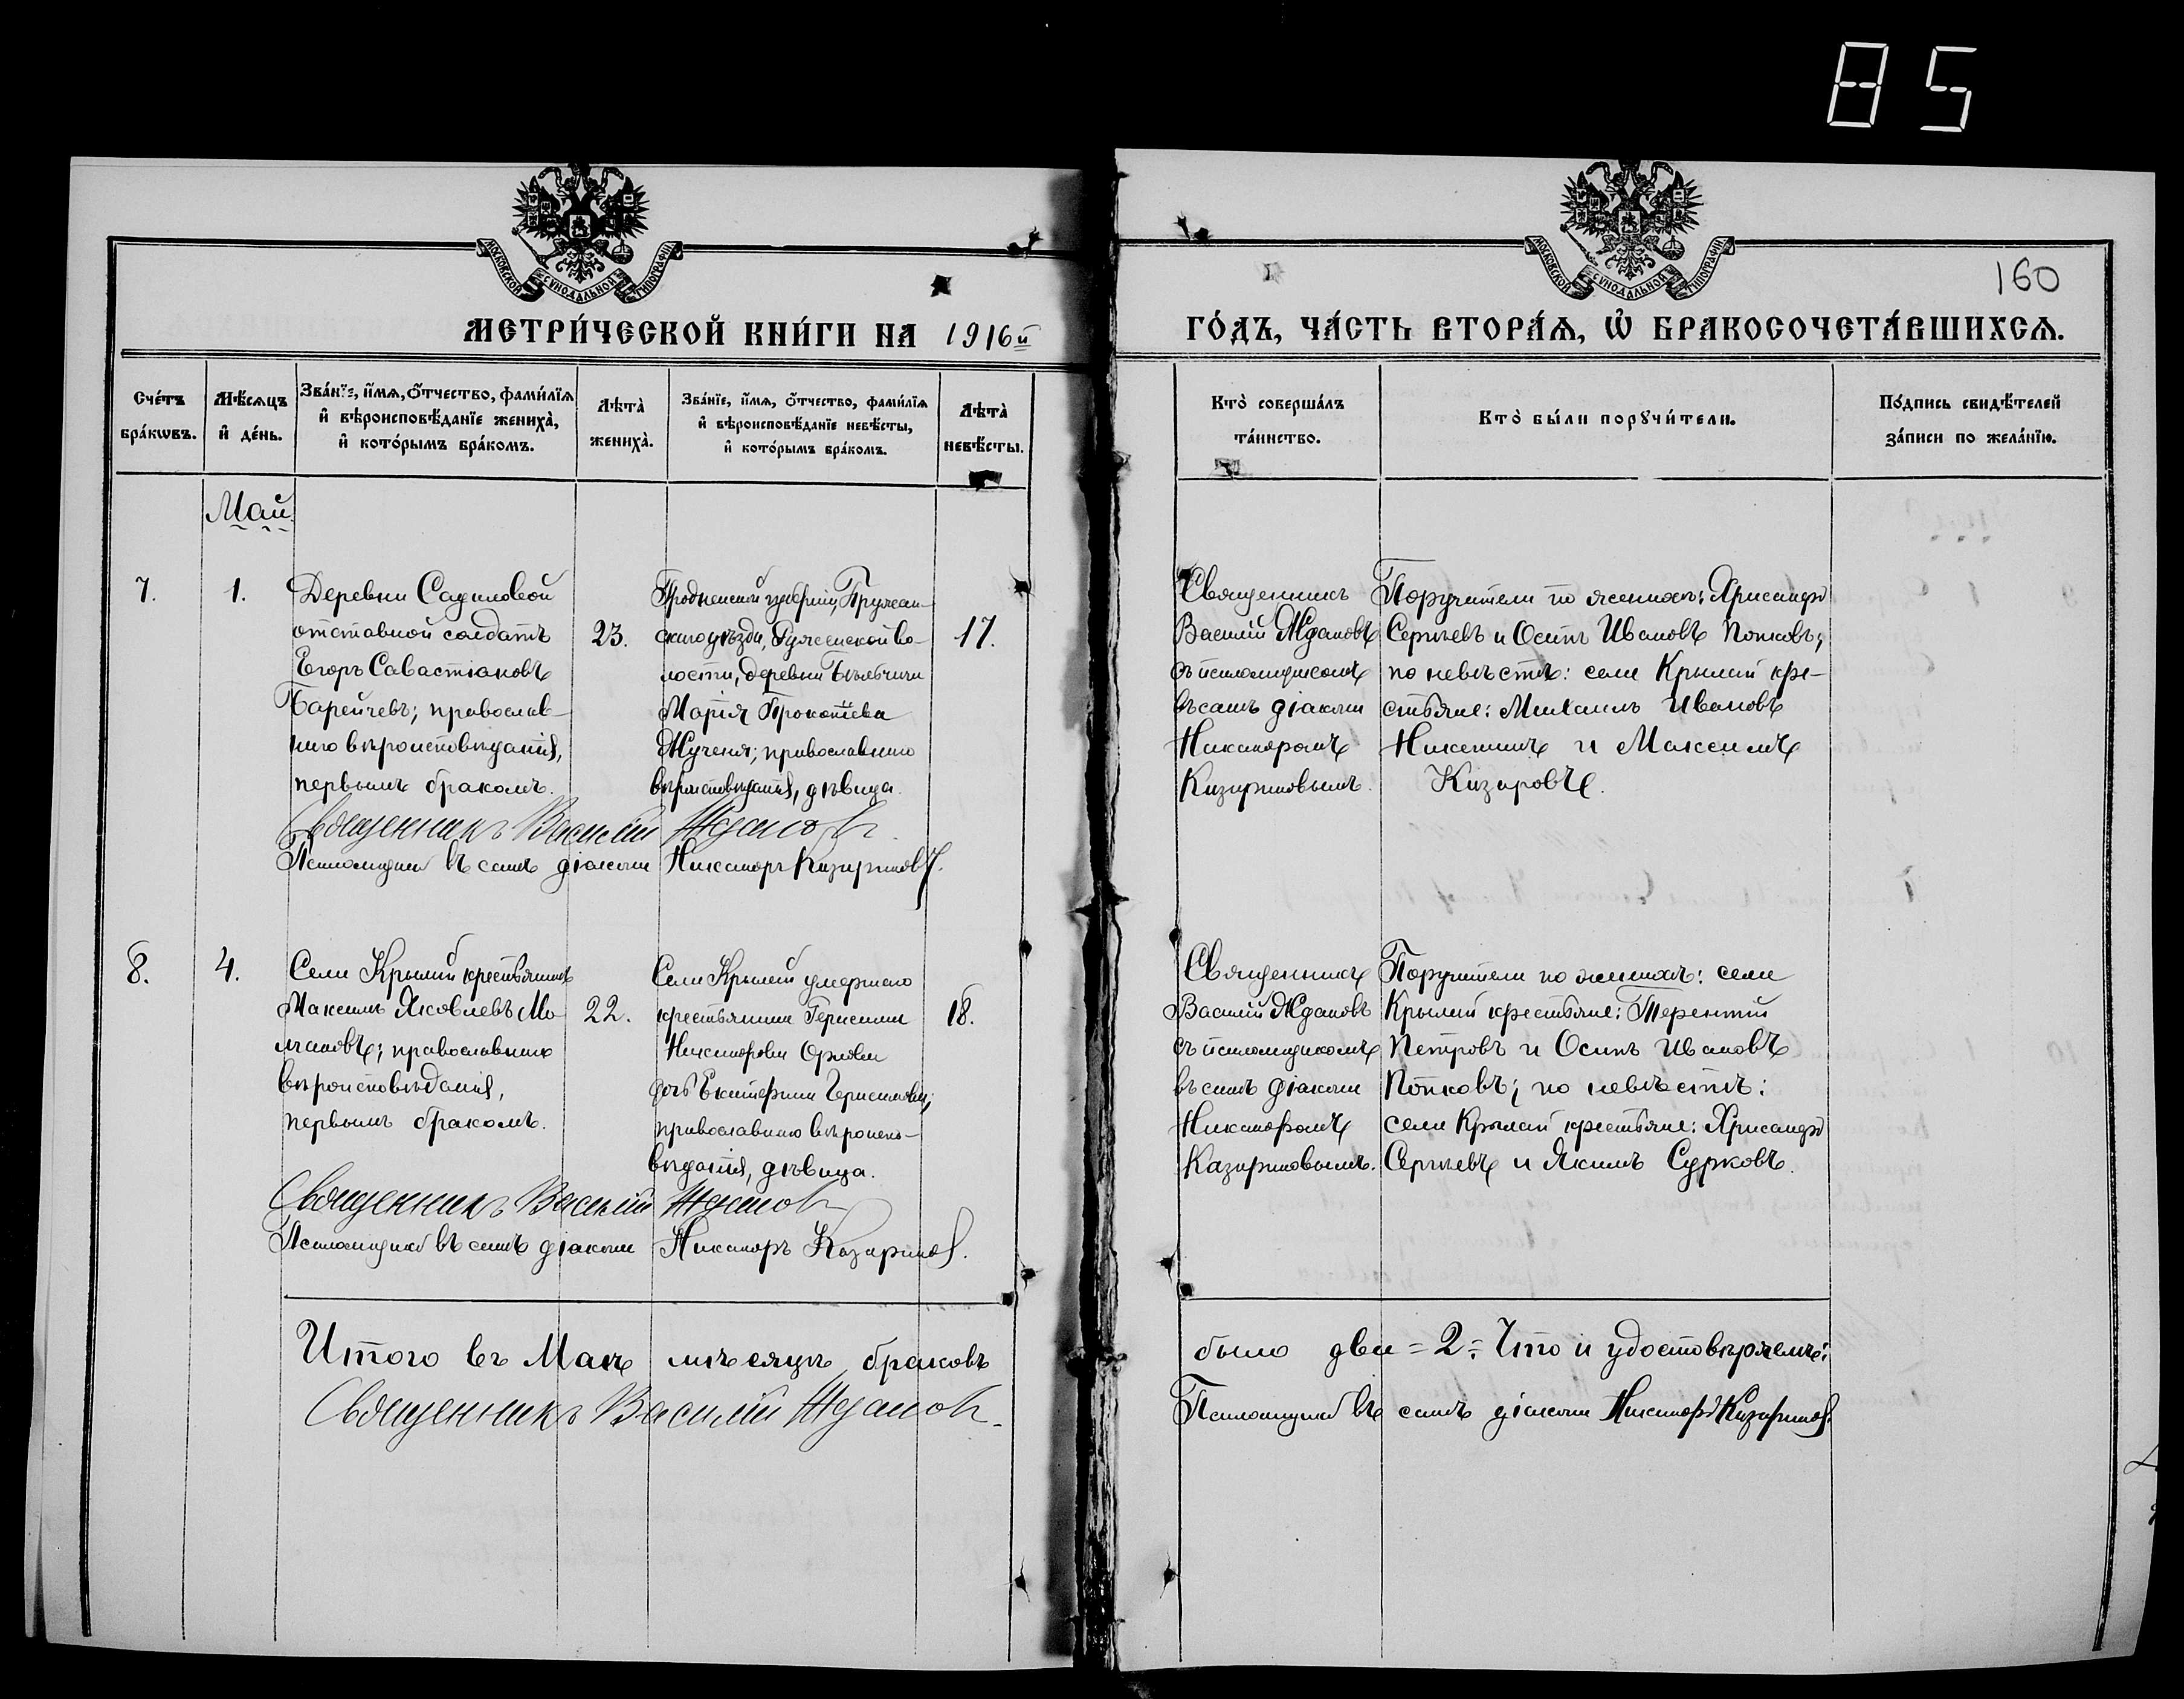 85
160
МОСКОВСКОЙ СѴНОДАЛЬНОЙ ТИПОГРАФІИ
МОСКОВСКОЙ СѴНОДАЛЬНОЙ ТИПОГРАФІИ
МЕТРИ́ЧЕСКОЙ КНИ́ГИ НА 1916й ГО́ДЪ, ЧА́СТЬ ВТОРА́Ѧ, Ѽ БРАКОСОЧЕТА́ВШИХСѦ.
Сче́тъ бра́кѡвъ.
Мѣ́сѧцъ и҆ де́нь.
Зва́нїе, и҆́мѧ, ѻ҆́тчество, фами́лїѧ и҆ вѣроисповѣ́данїе жениха̀, и҆ кото́рымъ бра́комъ.
Лѣта̀ жениха̀.
Зва́нїе, и҆́мѧ, ѻ҆́тчество, фами́лїѧ и҆ вѣроисповѣ́данїе невѣ́сты, и҆ кото́рымъ бра́комъ.
Лѣта̀ невѣ́сты.
Кто̀ соверша́лъ та́инство.
Кто̀ бы́ли порꙋчи́тели.
По́дпись свидѣ́телей за́писи по жела́нїю.
Май
7.
1.
Деревни
отставной солдатъ
Егоръ Савастіановъ
православ-
наго вѣроисповѣданія,
первымъ бракомъ.
23.
Гродненской губерніи, Пружан-
скаго уѣзда, во-
лости, деревни
Марія Прокопіева
православнаго
вѣроисповѣданія, дѣвица.
17.
Священникъ
Василій Ждановъ
съ псаломщикомъ
въ санѣ діакона
Никаноромъ
Казариновымъ.
Поручители по женихѣ: Хрисанфъ
Сергѣевъ и Осипъ Ивановъ Попковъ;
по невѣстѣ: села Крылай кре-
стьяне: Михаилъ Ивановъ
Никешинъ и Максимъ
Казаровъ.
Священникъ Василій Ждановъ.
Псаломщикъ въ санѣ діакона Никаноръ Казариновъ.
8.
4.
Села Крылай крестьянинъ
Максимъ Яковлевъ Мо-
лчановъ; православнаго
вѣроисповѣданія,
первымъ бракомъ.
22.
Села Крылай умершаго
крестьянина Герасима
Никанорова Орлова
дочь Екатерина Герасимова;
православнаго вѣроиспо-
вѣданія, дѣвица.
18.
Священникъ
Василій Ждановъ
съ псаломщикомъ
въ санѣ діакона
Никаноромъ
Казариновымъ.
Поручители по женихѣ: села
Крылай крестьяне: Терентій
Петровъ и Осипъ Ивановъ
Попковъ; по невѣстѣ:
села Крылай крестьяне: Хрисанфъ
Сергѣевъ и Якимъ Сурковъ.
Священникъ Василій Ждановъ
Псаломщикъ въ санѣ діакона Никаноръ Казариновъ.
Итого въ Маѣ мѣсяцѣ браковъ было два = 2 = Что и удостовѣряемъ:
Священникъ Василій Ждановъ.
Псаломщикъ въ санѣ діакона Никаноръ Казариновъ.